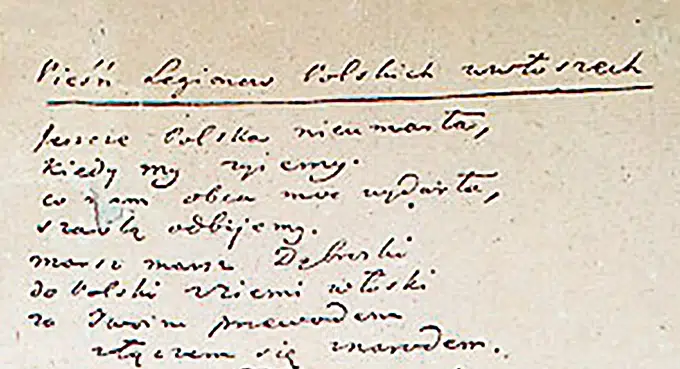 Pieśń Legionów Polskich we Włoszech
Jeszcze Polska nie umarła,
kiedy my żyjemy.
co nam obca moc wydarła,
szablą odbijemy.
marsz marsz Dąbroski
do Polski z ziemi włoski
za Twoim przewodem
złączem się z narodem.